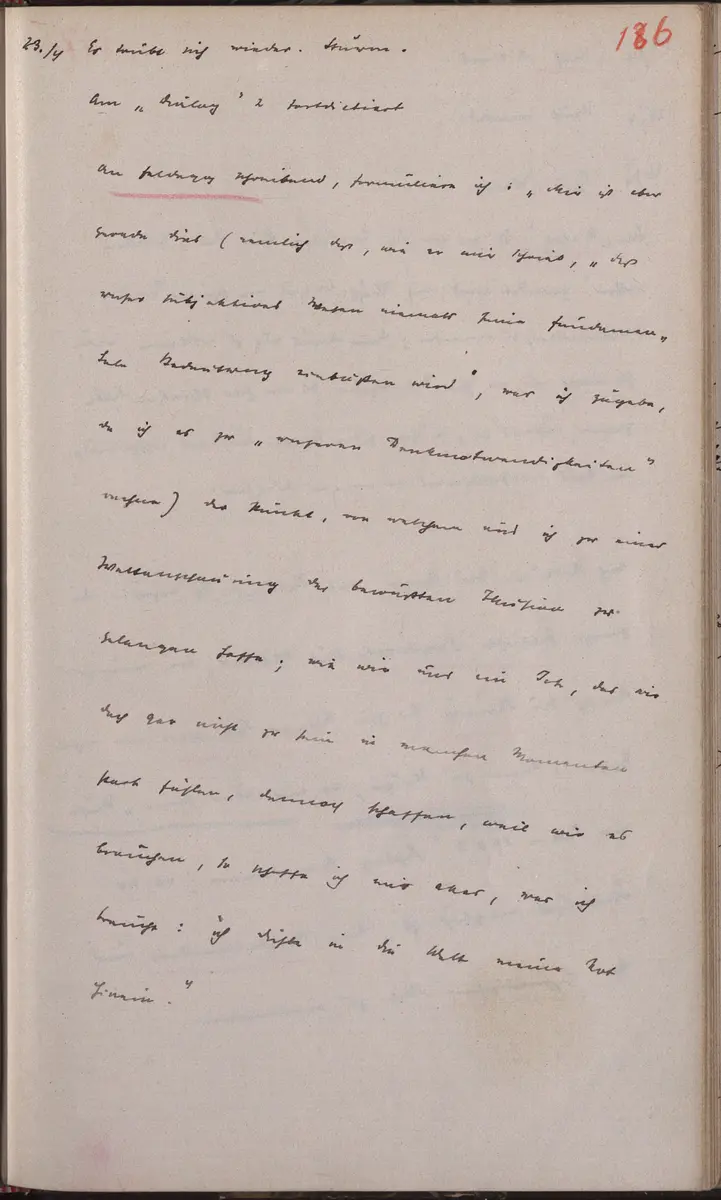 186
23./4 Es trübt sich wieder. Sturm.
Am „Dialog" 2 fortdictiert
An Saldungen schreibend, formuliere ich: „Mir ist aber
gerade dies (nemlich dass, wie er mir schreibt, „dass
unser subjektives Wesen niemals seine fundamen„
tale Bedeutung einbüßen wird", was ich zugebe,
da ich es zu „unseren Denknotwendigkeiten"
rechne) der Punkt, von welchem aus ich zu einer
Weltanschauung der bewußten Illusion zu
gelangen hoffe; wie wir uns ein Ich, das wir
doch gar nicht zu sein in manchen Momenten
stark fühlen, dennoch schaffen, weil wir es
brauchen, so schaffe ich mir eben, was ich
brauche: ich dichte in die Welt meinen Gott
hinein."